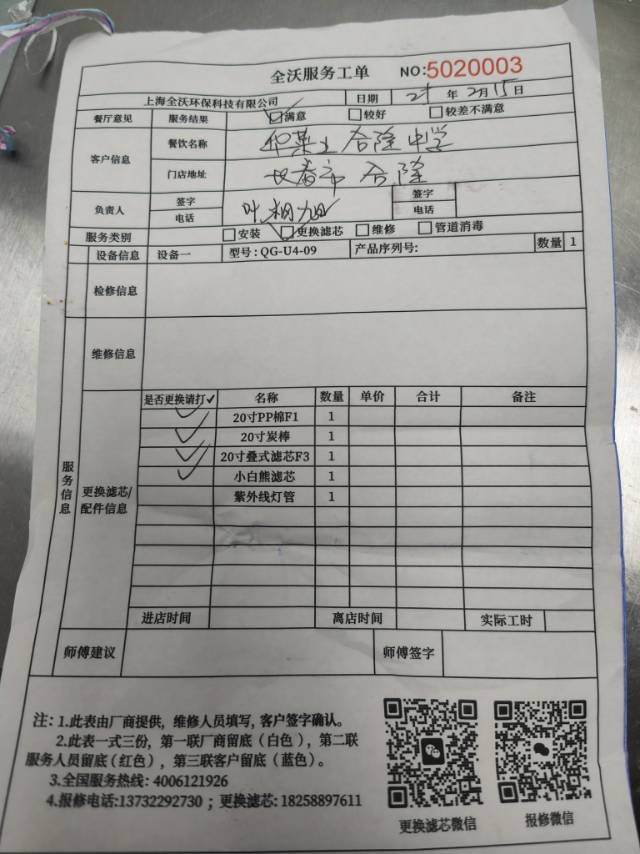 全沃服务工单 NO:5020003
上海全沃环保科技有限公司 日期 年 2月15日
餐厅意见 服务结果 ☑满意 □较好 □较差不满意
客户信息 餐饮名称 中学
门店地址 长春市
负责人 签字 叶 旭 签字
电话 电话
服务类别 □安装 ☑更换滤芯 □维修 □管道消毒
设备信息 设备一 型号: QG-U4-09 产品序列号: 数量 1
检修信息
维修信息
服务信息
更换滤芯/配件信息
是否更换请打✓ 名称 数量 单价 合计 备注
✓ 20寸PP棉F1 1
✓ 20寸炭棒 1
✓ 20寸叠式滤芯F3 1
✓ 小白熊滤芯 1
紫外线灯管 1
进店时间 离店时间 实际工时
师傅建议 师傅签字
注: 1.此表由厂商提供, 维修人员填写, 客户签字确认。
2.此表一式三份, 第一联厂商留底(白色), 第二联
服务人员留底(红色), 第三联客户留底(蓝色)。
3.全国服务热线: 4006121926
4.报修电话:13732292730 ; 更换滤芯: 18258897611
更换滤芯微信 报修微信